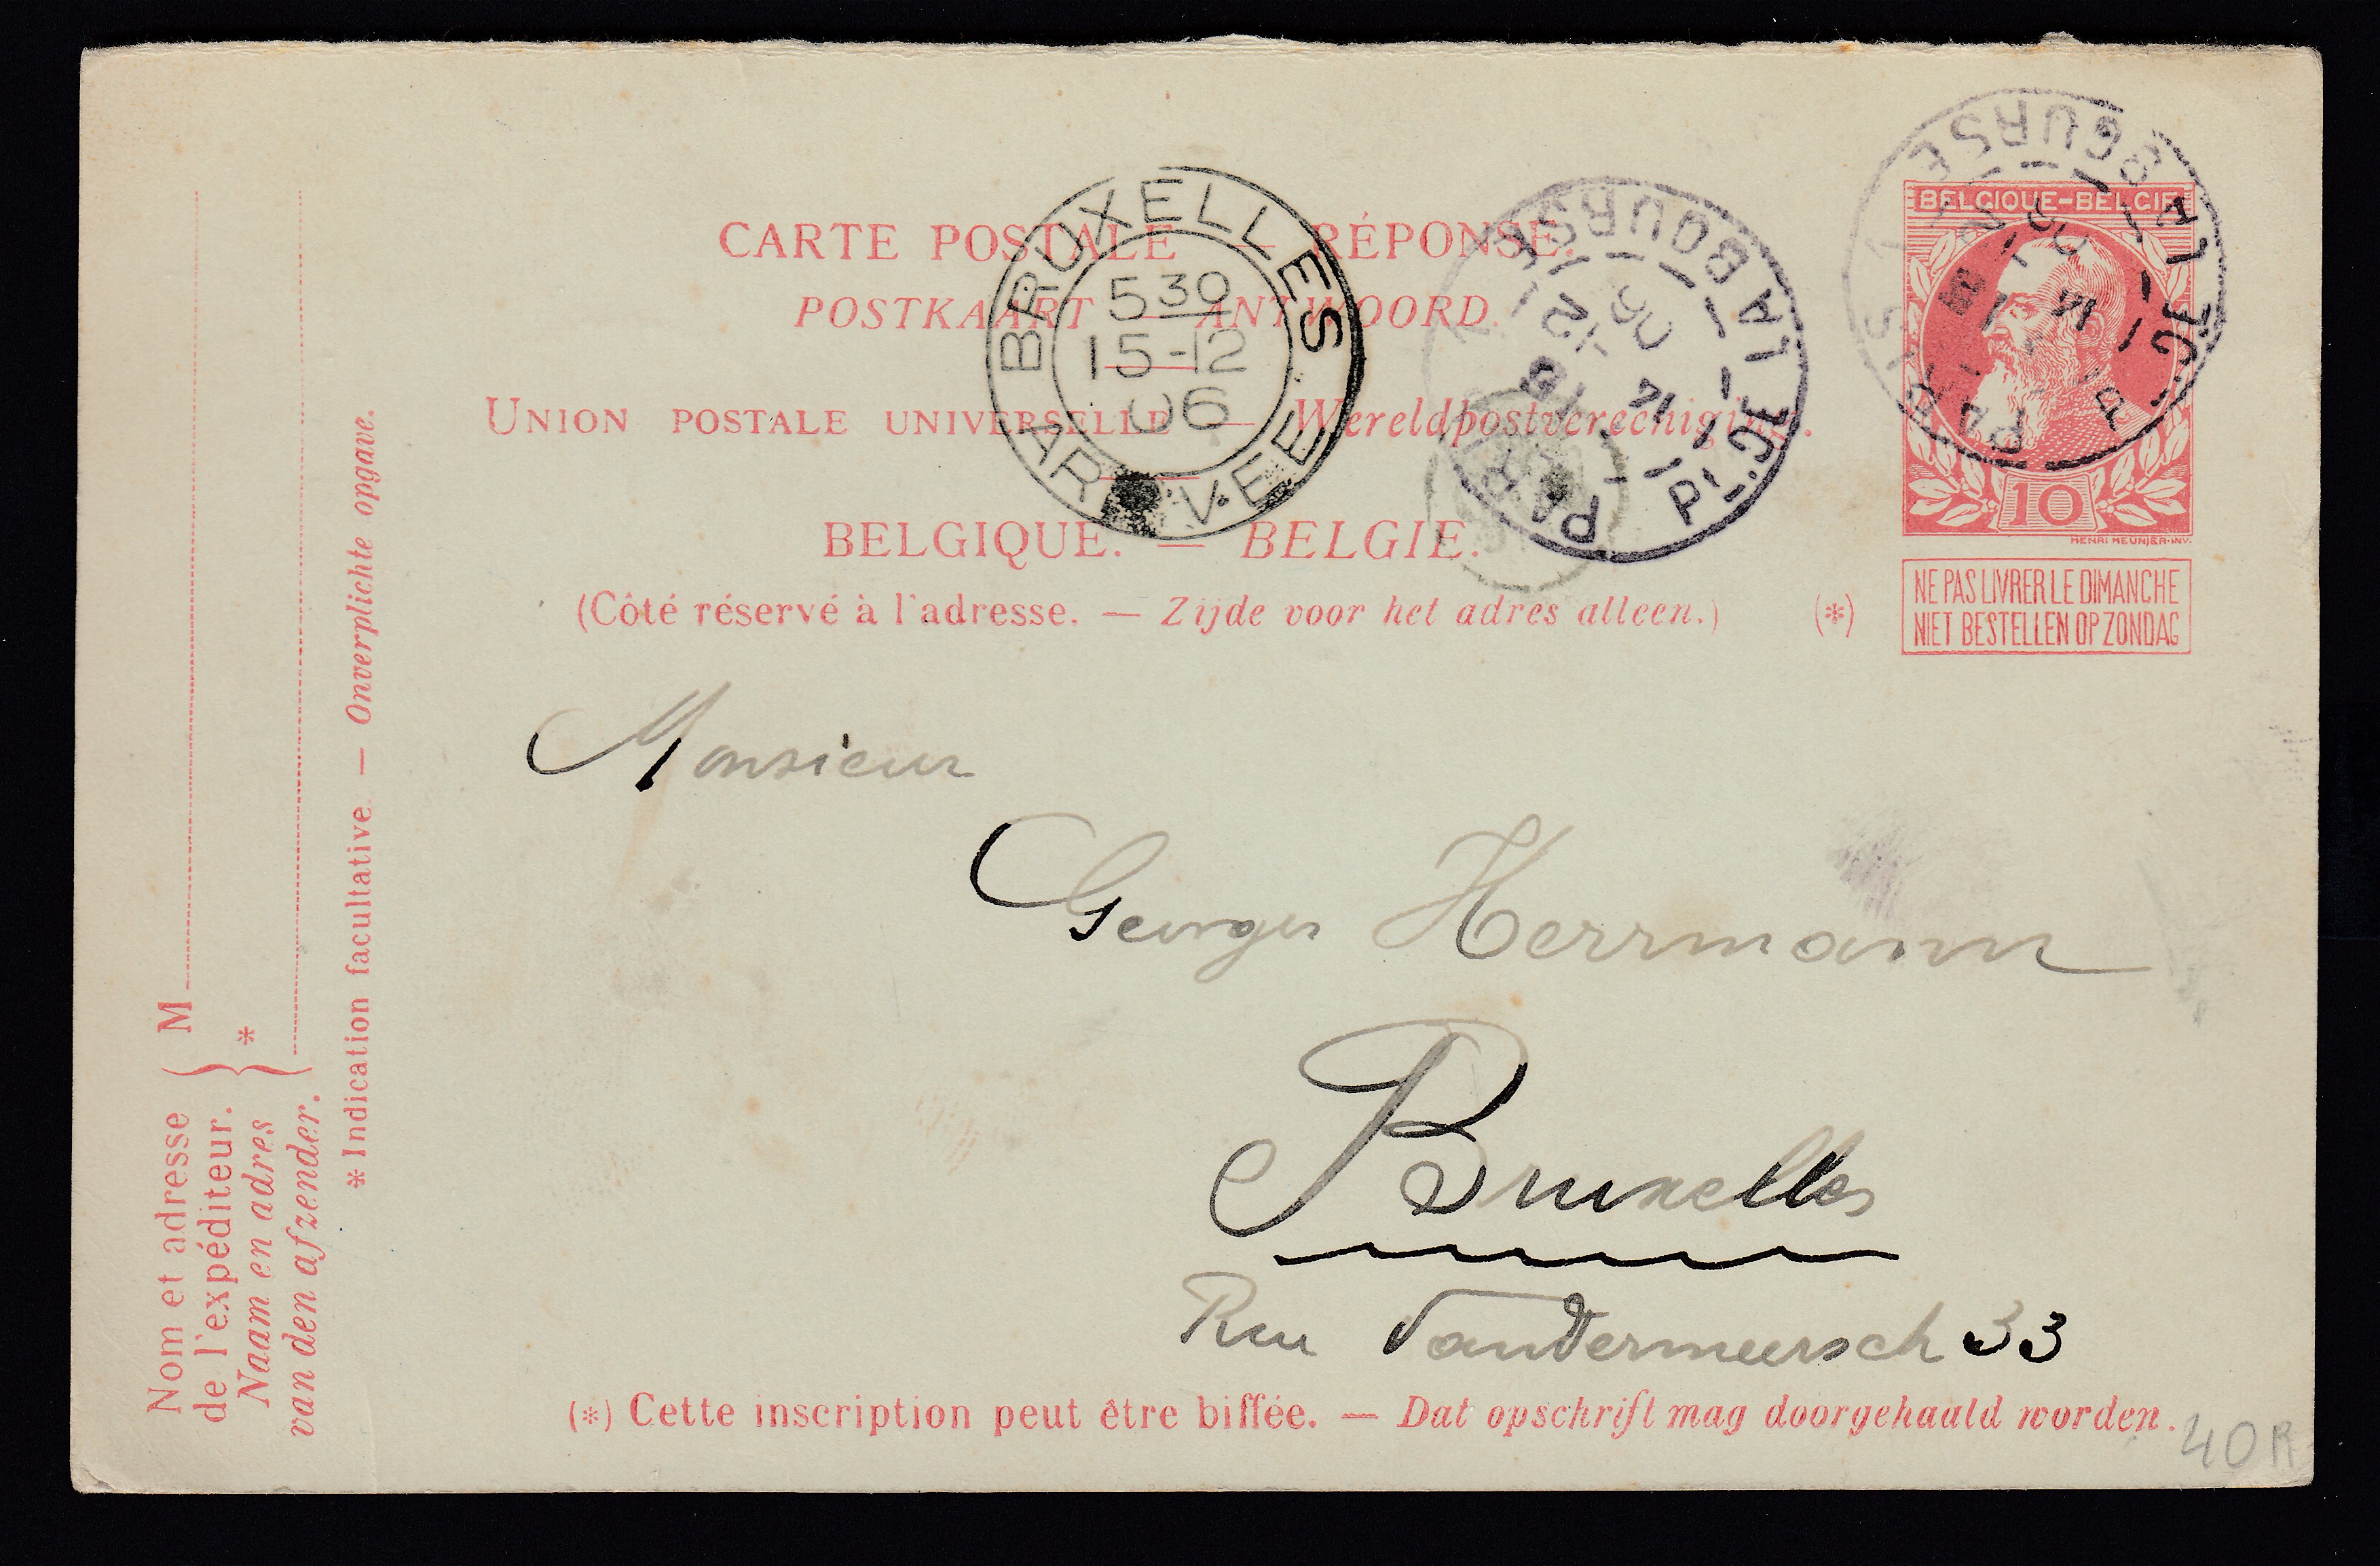 CARTE POSTALE — RÉPONSE.
POSTKAART — ANTWOORD.
UNION POSTALE UNIVERSELLE — Wereldpostvereeniging.
BELGIQUE. — BELGIE.
(Côté réservé à l'adresse. — Zijde voor het adres alleen.) (*)
BRUXELLES
5 30
15-12
06
ARRIVEE
PARIS
PL. DE LA BOURSE
14
15
12
06
PARIS
PL. DE LA BOURSE
14
BELGIQUE-BELGIË
10
HENRI MEUNIER·INV.
NE PAS LIVRER LE DIMANCHE
NIET BESTELLEN OP ZONDAG
Monsieur
Georges Herrmann
Bruxelles
Rue Vandermeersch 33
(*) Cette inscription peut être biffée. — Dat opschrift mag doorgehaald worden.
40R
M
Nom et adresse
de l'expéditeur.
*
Naam en adres
van den afzender.
* Indication facultative. — Onverplichte opgave.